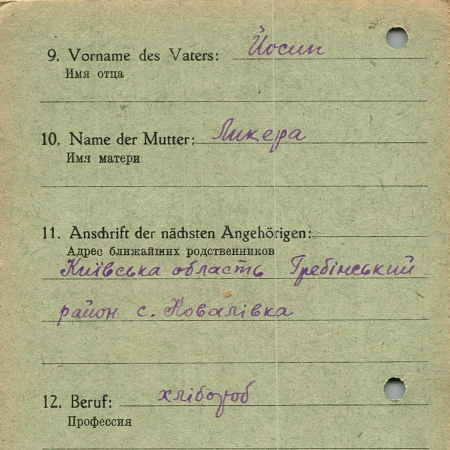 9. Vorname des Vaters: Йосип
Имя отца
10. Name der Mutter: Ликера
Имя матери
11. Anschrift der nächsten Angehörigen:
Адрес ближайших родственников
Київська область Гребінський
район с. Ковалівка
12. Beruf: хлібороб
Профессия